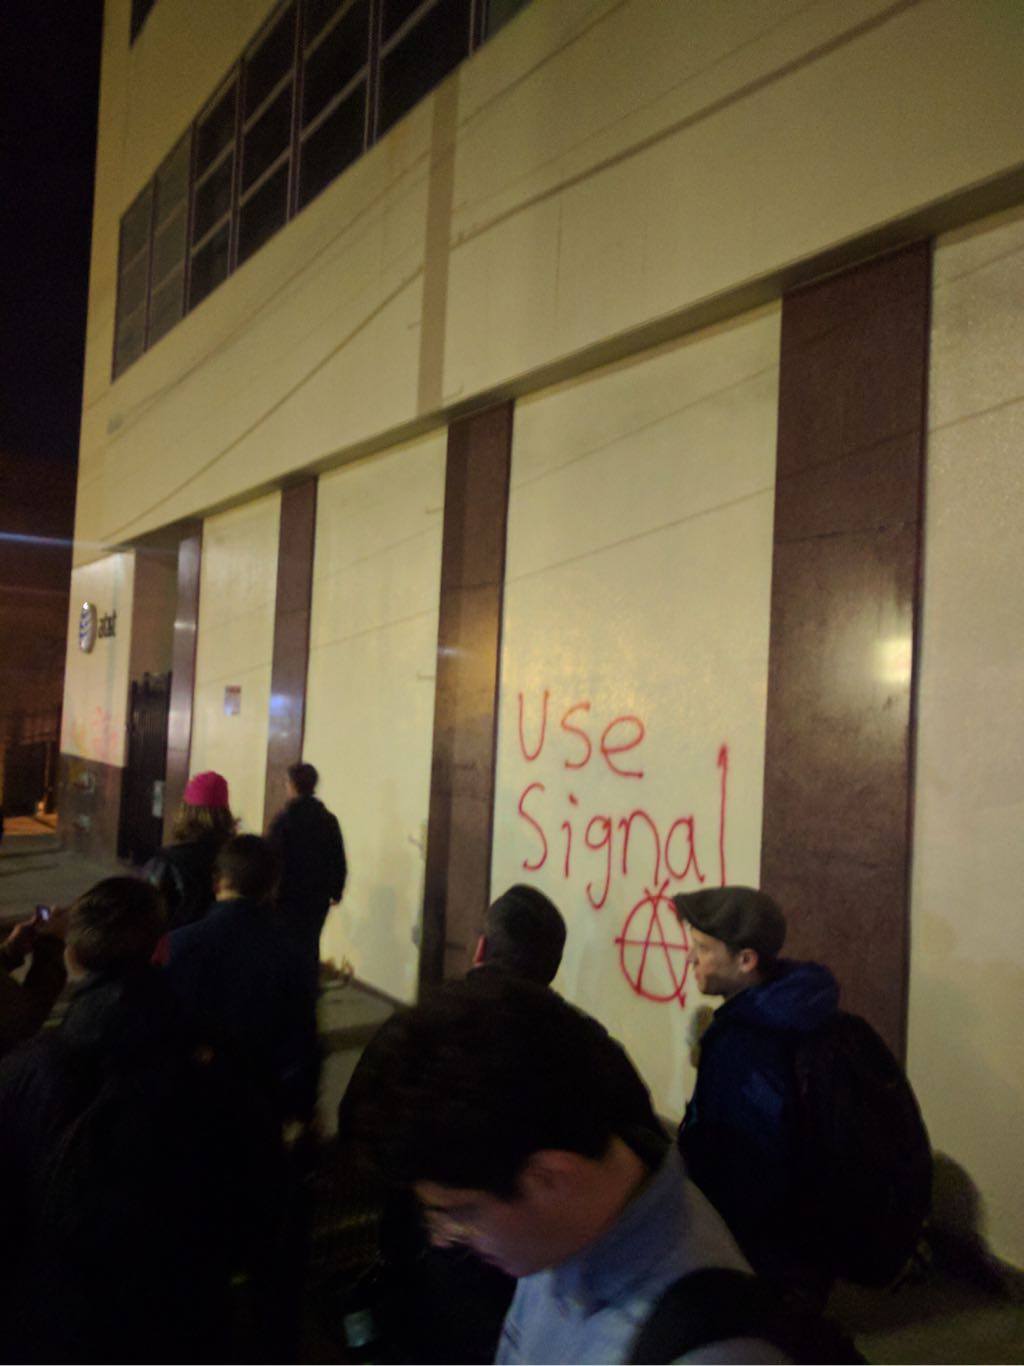 at&t
Use
Signal